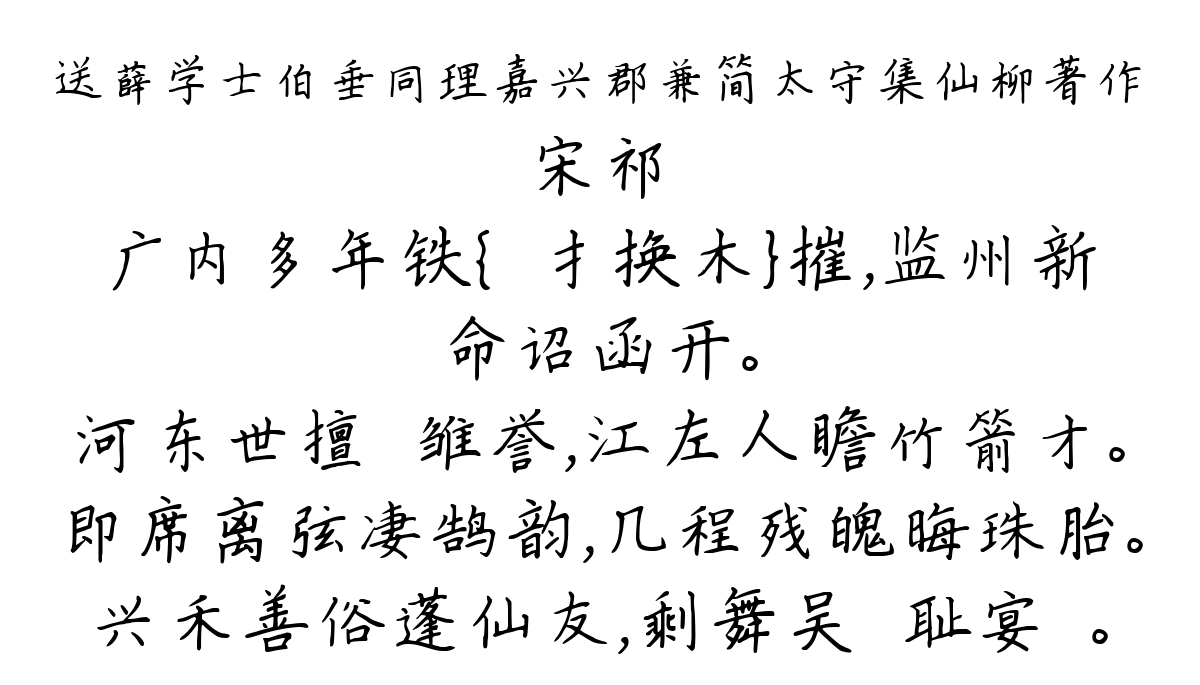 送薛学士伯垂同理嘉兴郡兼简太守集仙柳著作
宋祁
广内多年铁{ 扌换木}摧,监州新
命诏函开。
河东世擅 雏誉,江左人瞻竹箭才。
即席离弦凄鹄韵,几程残魄晦珠胎。
兴禾善俗蓬仙友,剩舞吴 耻宴 。